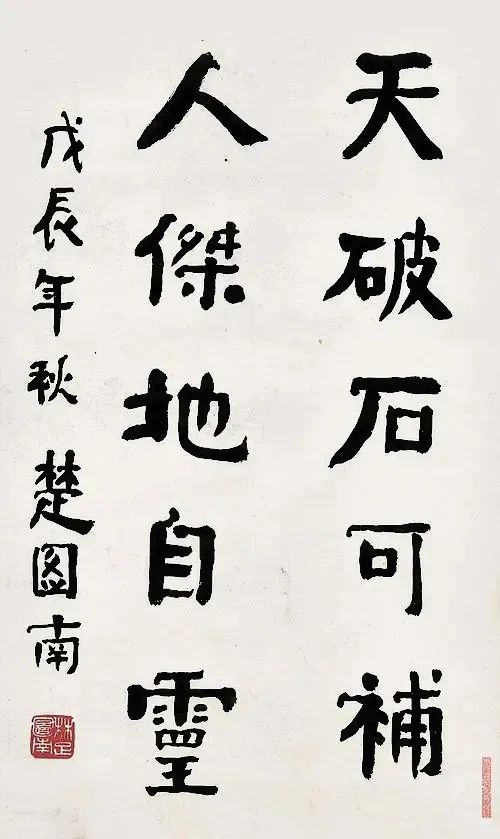 天破石可補
人傑地自靈
戊辰年秋 楚圖南